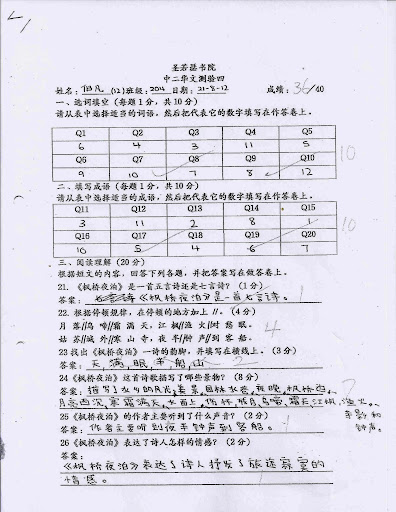 圣若瑟书院
中二华文测验四
姓名：伯凡 (12) 班级：204 日期：21-8-12 成绩：36/40
一、选词填空（每题1分，共10分）
请从表中选择适当的词语，然后把代表它的数字填写在作答卷上。
Q1 Q2 Q3 Q4 Q5
6 4 3 11 5
Q6 Q7 Q8 Q9 Q10
9 10 7 8 12
10
二、填写成语（每题1分，共10分）
请从表中选择适当的词语，然后把代表它的数字填写在作答卷上。
Q11 Q12 Q13 Q14 Q15
3 11 2 8 1
Q16 Q17 Q18 Q19 Q20
10 5 4 6 7
10
三、阅读理解（20分）
根据短文的内容，回答下列各题，并把答案写在做答卷上。
21.《枫桥夜泊》是一首五言诗还是七言诗？（1分）
答案：《枫桥夜泊》是一首七言诗。
22. 根据停顿规律，在停顿的地方加上 //。（4分）
月落//乌啼//霜满天，江枫//渔火//对愁眠。
姑苏//城外//寒山寺，夜半//钟声//到客船。
4
23 找出《枫桥夜泊》一诗的韵脚，并填写在横线上。（3分）
答案：天满，眠，船，山
24《枫桥夜泊》这首诗歌描写了哪些景物？（8分）
答案：描写了
月亮西沉，寒霜满天，江枫，渔火，
钟声。
25《枫桥夜泊》的作者主要听到了什么声音？（2分）
答案：作者主要听到夜半钟声到客船。
26《枫桥夜泊》表达了诗人怎样的情感？（2分）
答案：
《枫桥夜泊》表达了诗人抒发了旅途寂寞的
情感。